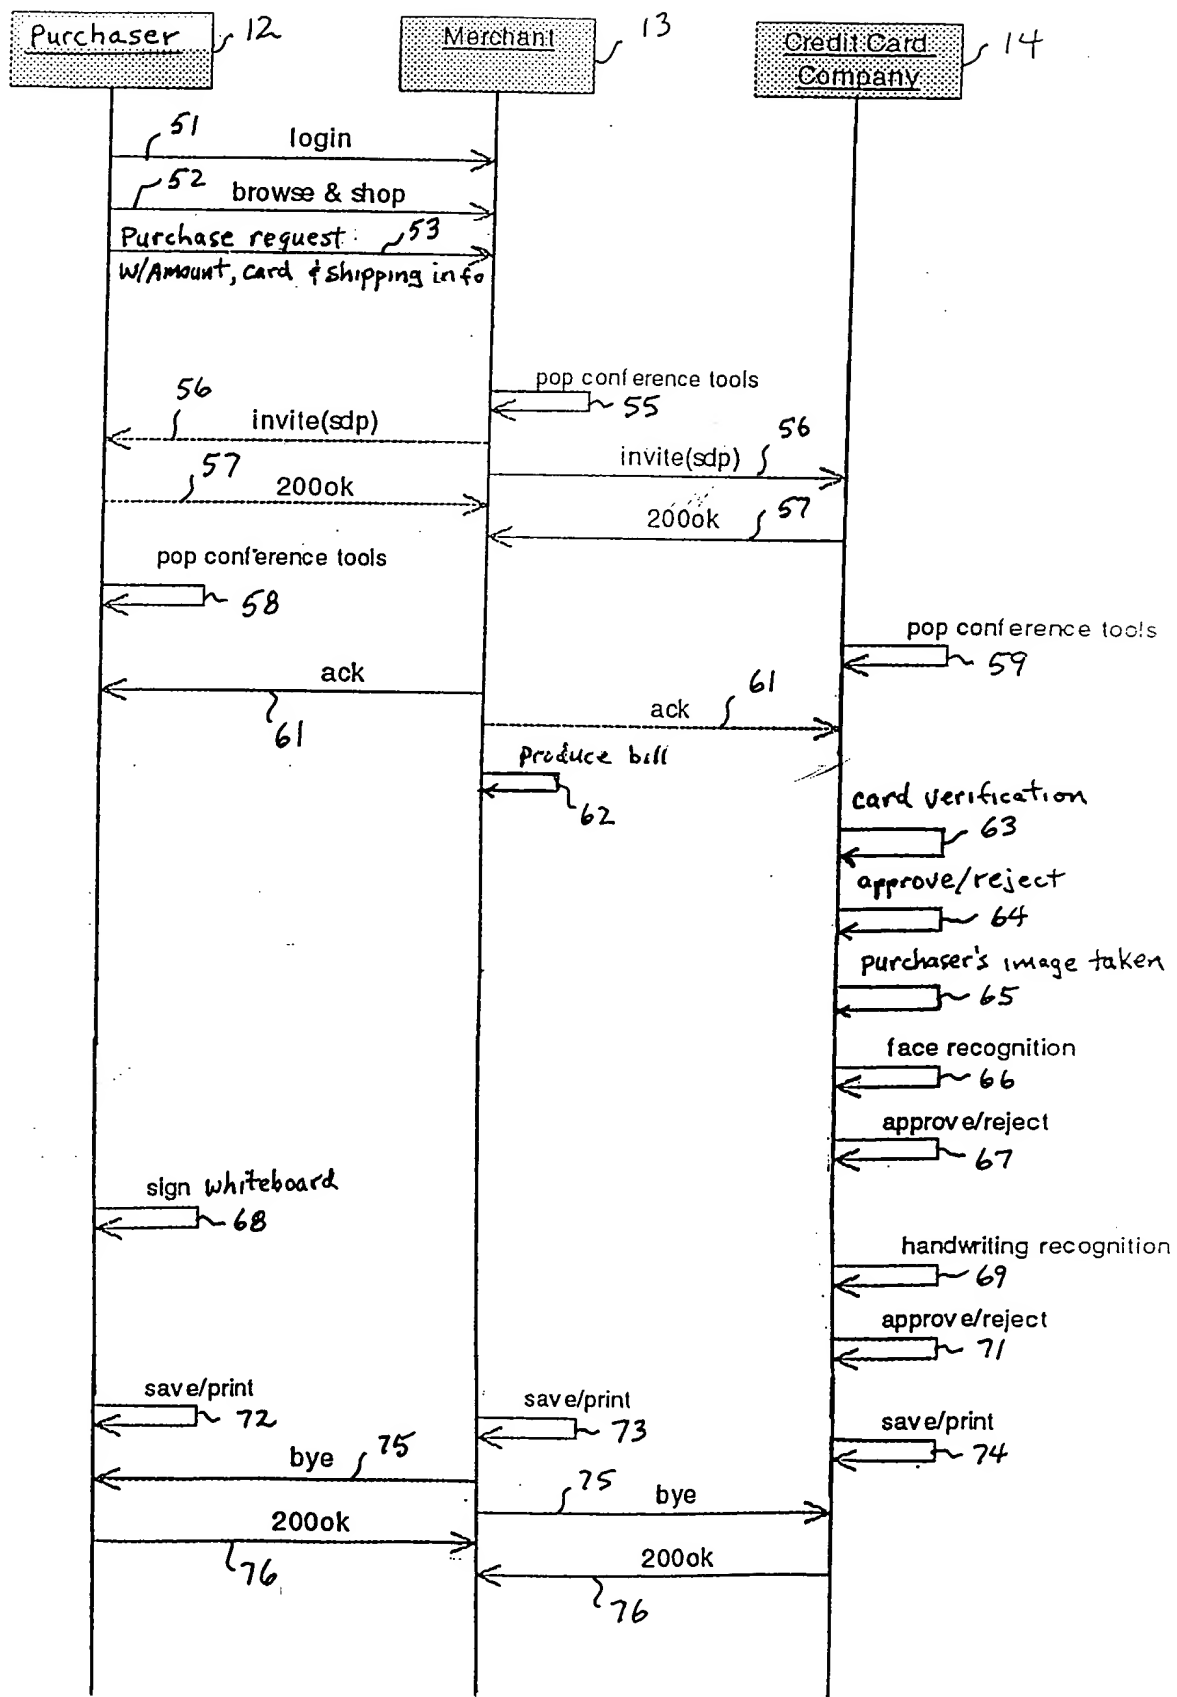 Purchaser 12
Merchant 13
Credit Card 14
Company
51
login
52
browse & shop
Purchase request 53
w/Amount, card & shipping info
pop conference tools
55
56
invite(sdp)
56
invite(sdp)
57
200ok
57
200ok
pop conference tools
58
pop conference tools
59
ack
61
61
ack
Produce bill
62
card verification
63
approve/reject
64
purchaser's image taken
65
face recognition
66
approve/reject
67
sign whiteboard
68
handwriting recognition
69
approve/reject
71
save/print
72
save/print
73
save/print
74
bye 75
75 bye
200ok
76
200ok
76